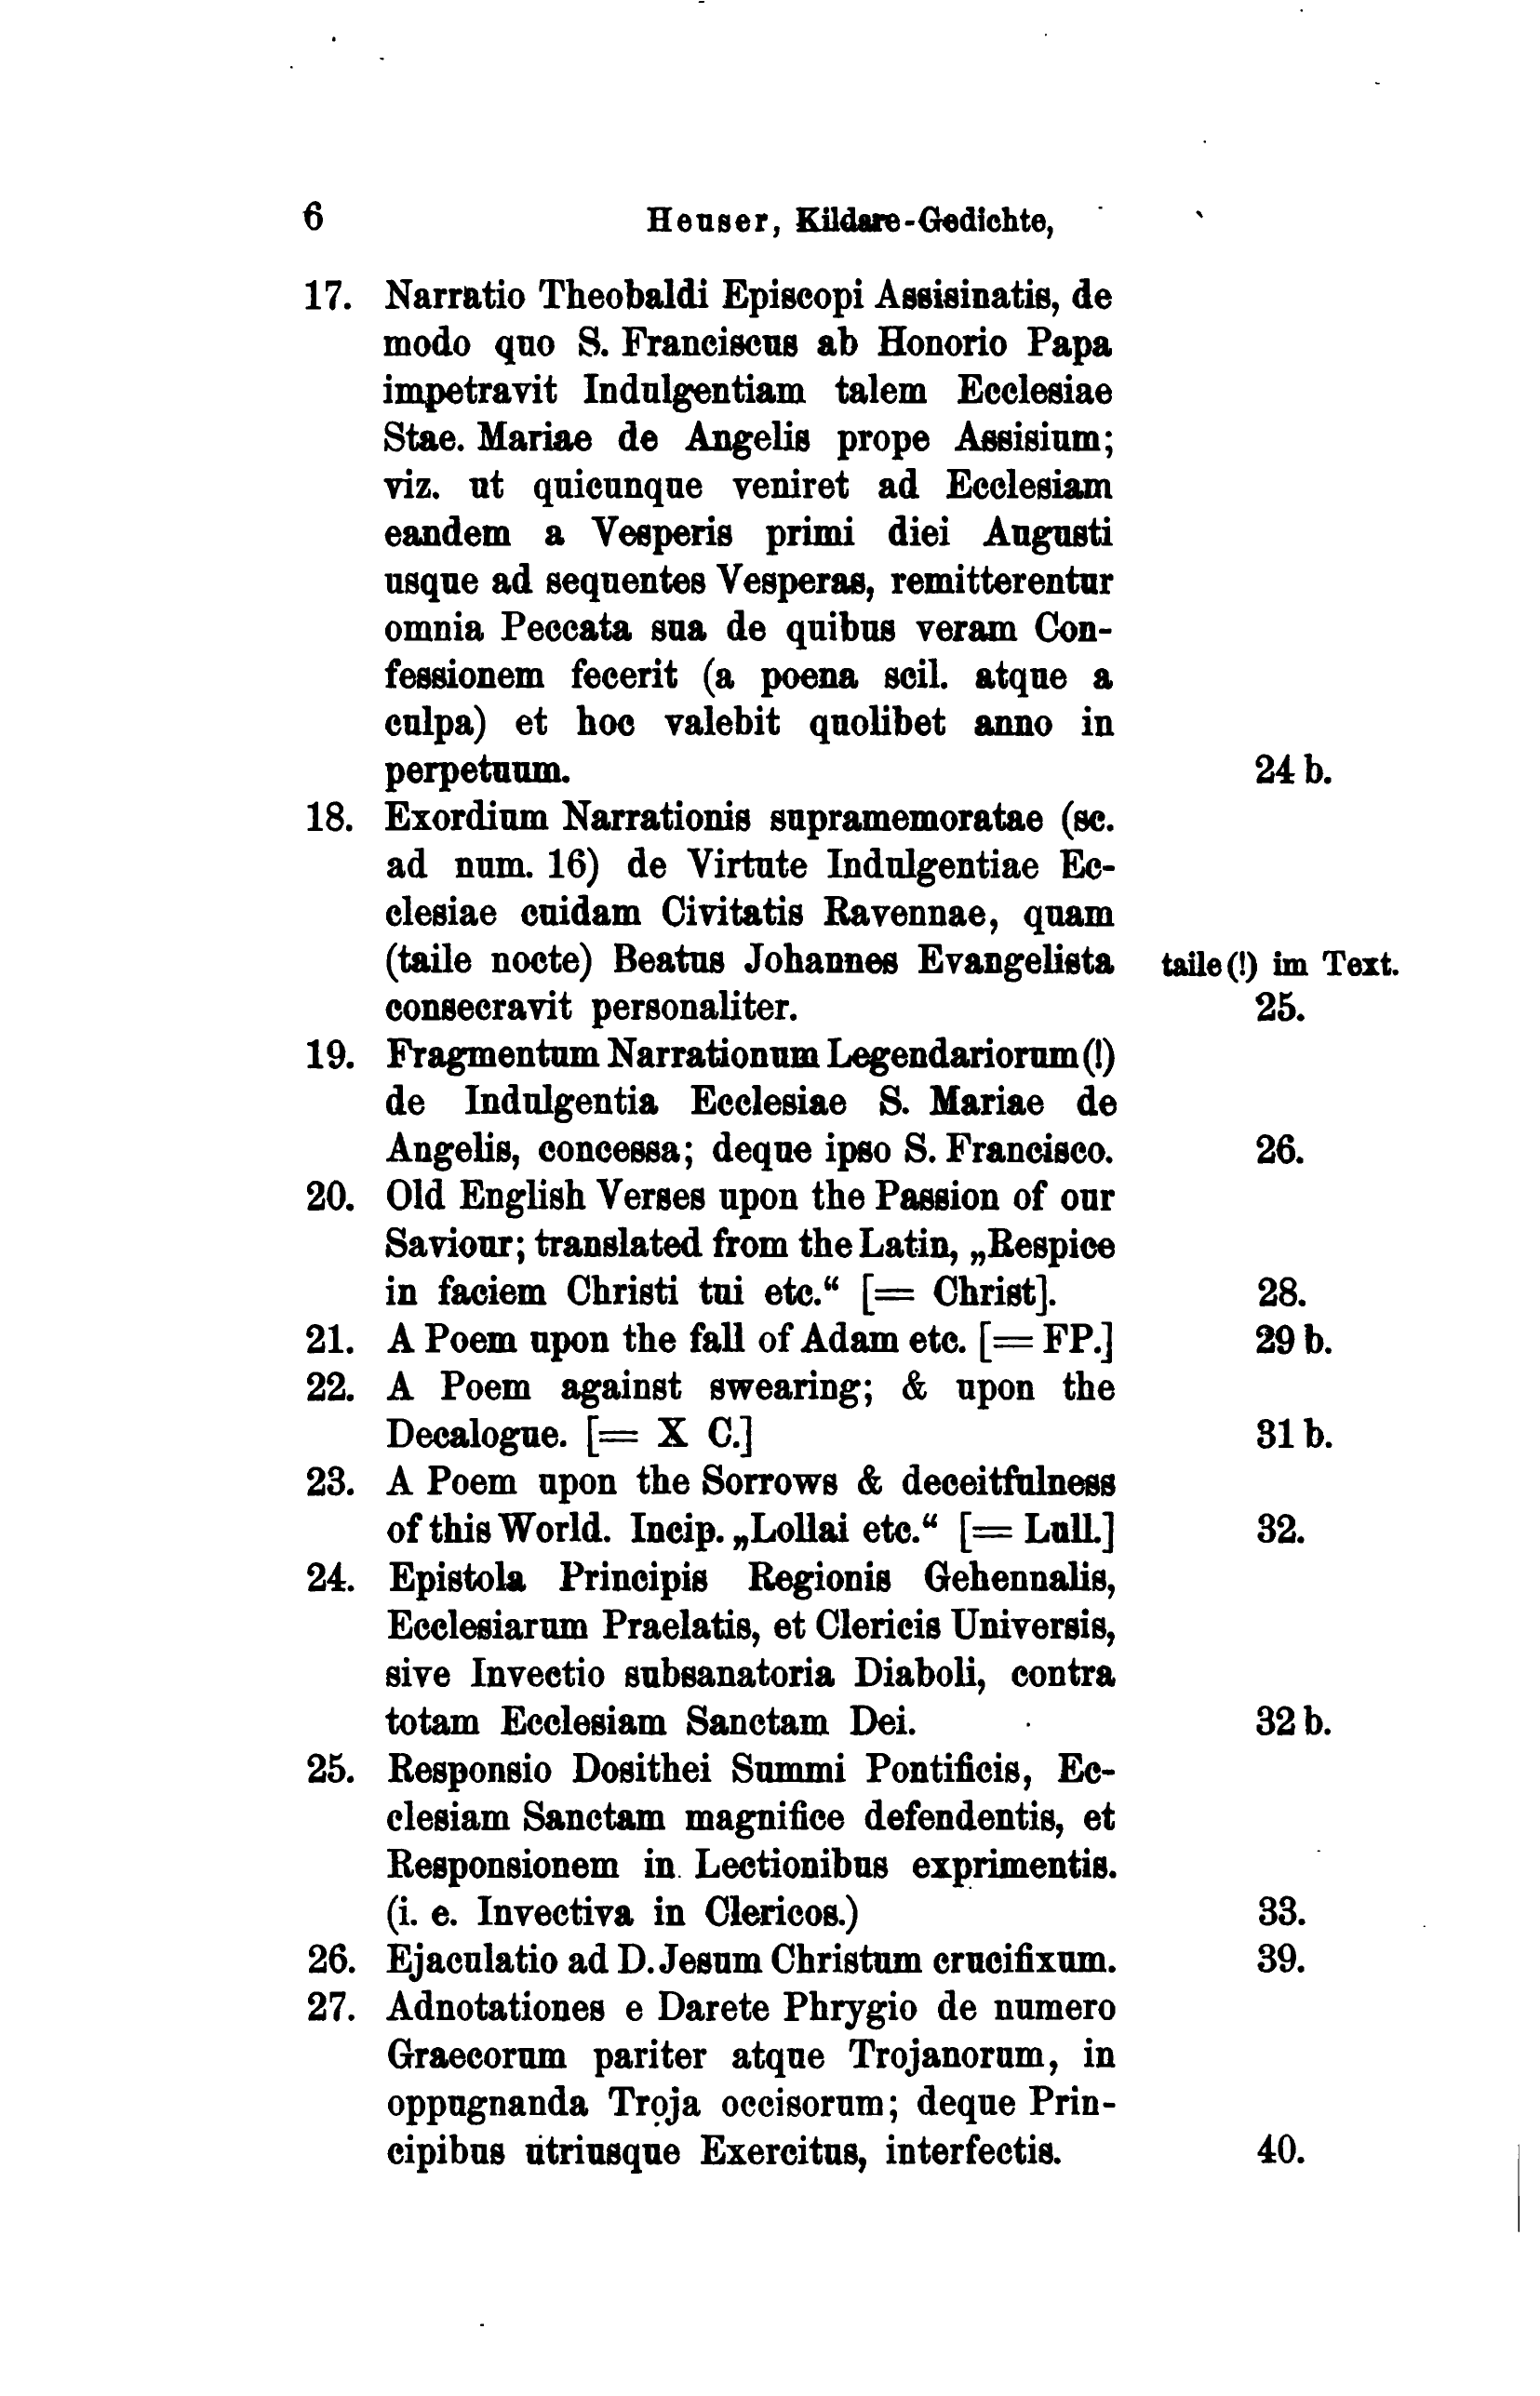 6 Heuser, Kildare-Gedichte,
17. Narratio Theobaldi Episcopi Assisinatis, de
modo quo S. Franciscus ab Honorio Papa
impetravit Indulgentiam talem Ecclesiae
Stae. Mariae de Angelis prope Assisium;
viz. ut quicunque veniret ad Ecclesiam
eandem a Vesperis primi diei Augusti
usque ad sequentes Vesperas, remitterentur
omnia Peccata sua de quibus veram Con-
fessionem fecerit (a poena scil. atque a
culpa) et hoc valebit quolibet anno in
perpetuum. 24 b.
18. Exordium Narrationis supramemoratae (sc.
ad num. 16) de Virtute Indulgentiae Ec-
clesiae cuidam Civitatis Ravennae, quam
(taile nocte) Beatus Johannes Evangelista taile (!) im Text.
consecravit personaliter. 25.
19. Fragmentum Narrationum Legendariorum (!)
de Indulgentia Ecclesiae S. Mariae de
Angelis, concessa; deque ipso S. Francisco. 26.
20. Old English Verses upon the Passion of our
Saviour; translated from the Latin, „Respice
in faciem Christi tui etc.“ [= Christ]. 28.
21. A Poem upon the fall of Adam etc. [= FP.] 29 b.
22. A Poem against swearing; & upon the
Decalogue. [= X C.] 31 b.
23. A Poem upon the Sorrows & deceitfulness
of this World. Incip. „Lollai etc.“ [= Lull.] 32.
24. Epistola Principis Regionis Gehennalis,
Ecclesiarum Praelatis, et Clericis Universis,
sive Invectio subsanatoria Diaboli, contra
totam Ecclesiam Sanctam Dei. 32 b.
25. Responsio Dosithei Summi Pontificis, Ec-
clesiam Sanctam magnifice defendentis, et
Responsionem in Lectionibus exprimentis.
(i. e. Invectiva in Clericos.) 33.
26. Ejaculatio ad D. Jesum Christum crucifixum. 39.
27. Adnotationes e Darete Phrygio de numero
Graecorum pariter atque Trojanorum, in
oppugnanda Troja occisorum; deque Prin-
cipibus utriusque Exercitus, interfectis. 40.